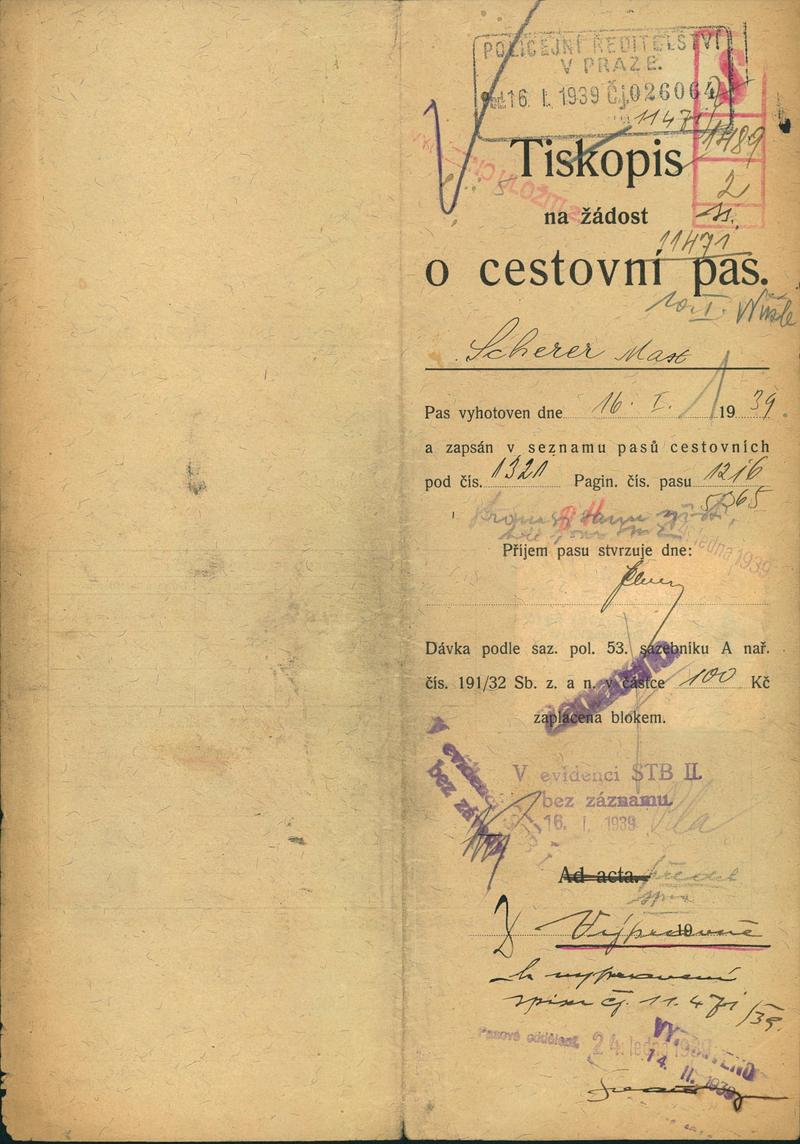 POLICEJNÍ ŘEDITELSTVÍ
V PRAZE.
16. I. 1939 Čj. 026064
11471
S
1489
2
Tiskopis
na žádost
11471
o cestovní pas.
10. I.
Scherer Max
Pas vyhotoven dne 16. I. 1939.
a zapsán v seznamu pasů cestovních
pod čís. 1321 Pagin. čís. pasu 1216
5365
ledna 1939
Příjem pasu stvrzuje dne:
Dávka podle saz. pol. 53. sazebníku A nař.
čís. 191/32 Sb. z. a n. v částce 100 Kč
zaplacena blokem.
V evidenci STB II.
bez záznamu.
16. I. 1939
V evidenci
bez
Ad acta.
19
Výpravně
k vypravení
spisu čj. 11.471/39.
Pasové oddělení. 24. ledna 1939
14. II. 1939